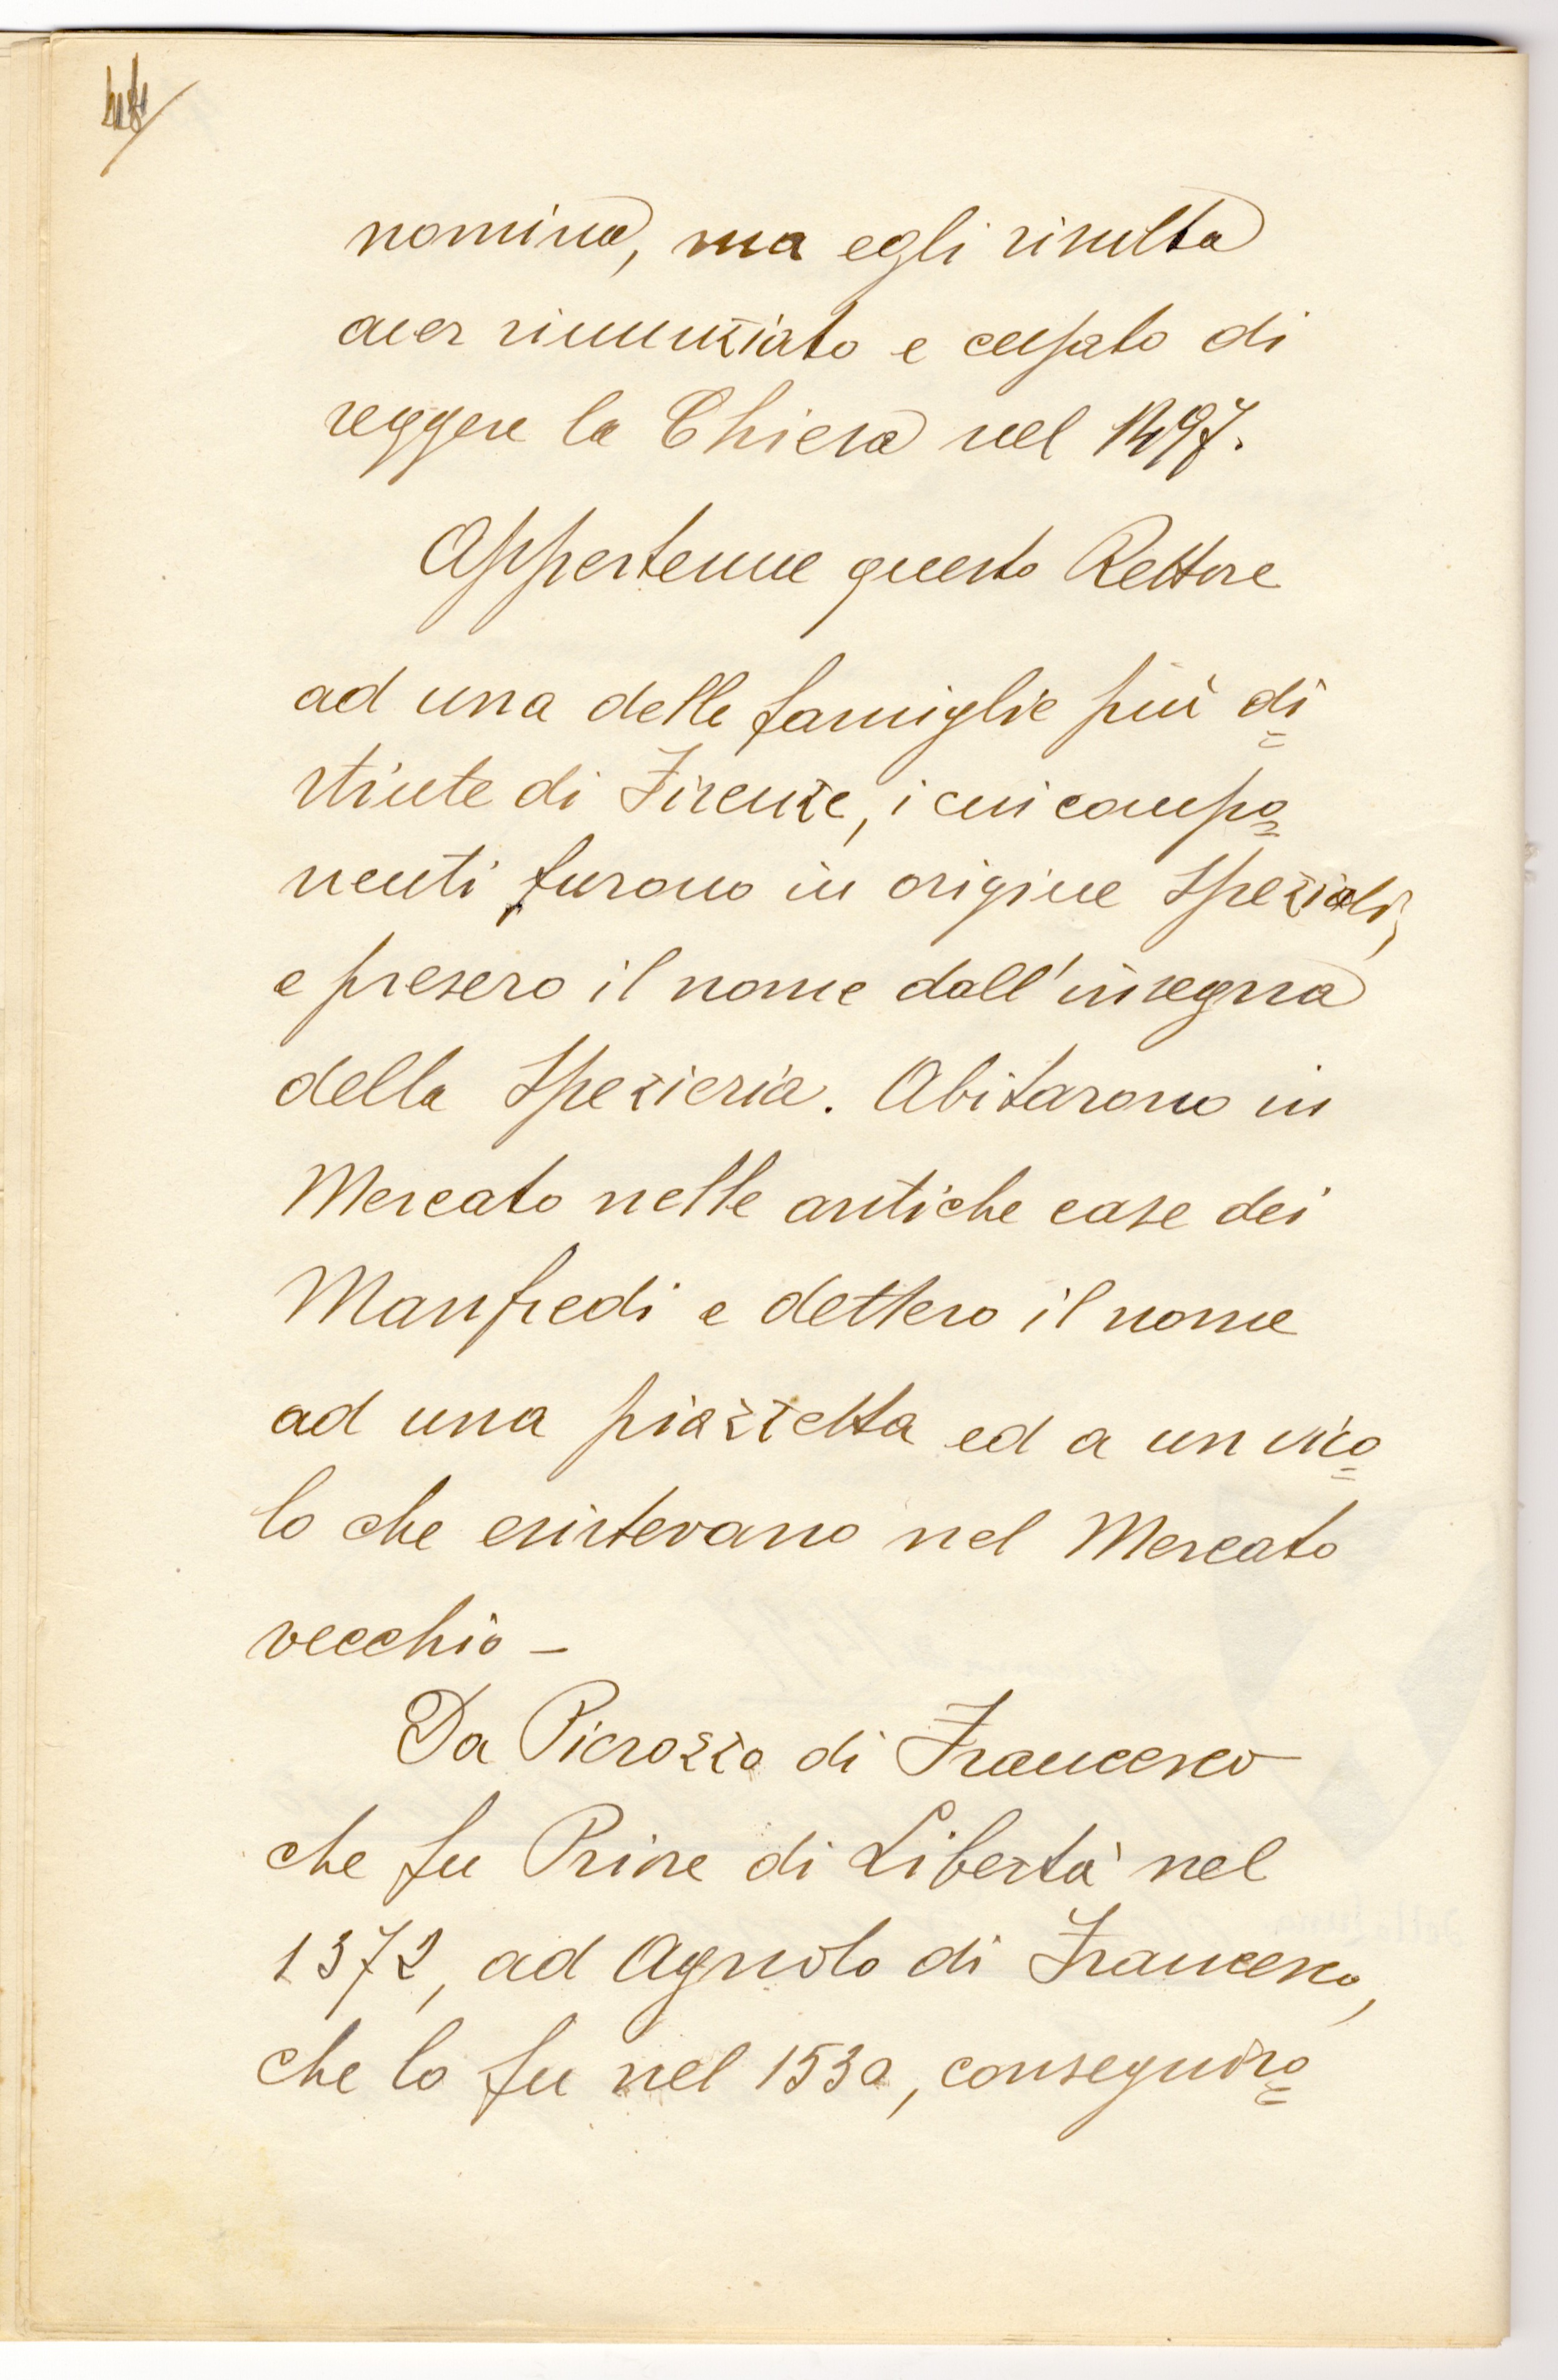 nomina, ma egli risulta
aver rinunziato e cessato di
reggere la Chiesa nel 1497.
Appartenne questo Rettore
ad una delle famiglie più di=
stinte di Firenze, i cui compo=
nenti furono in origine Speziali,
e presero il nome dall'insegna
della Spezieria. Abitarono in
Mercato nelle antiche case dei
Manfredi e dettero il nome
ad una piazzetta ed a un vico=
lo che esistevano nel Mercato
vecchio –
Da Pierozzo di Francesco
che fu Priore di Libertà nel
1372, ad Agnolo di Francesco,
che lo fu nel 1530, conseguiro=